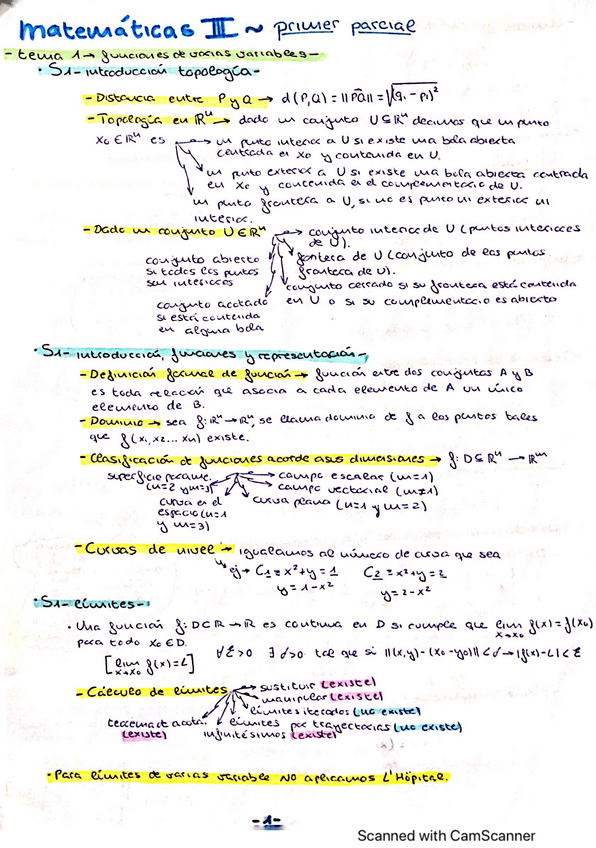 matemáticas III ~ primer parcial
- tema 1 → funciones de varias variables -
· S1 - introducción topología -
- Distancia entre P y Q → d(P,Q) = ||PQ|| = √(qi - pi)²
- Topología en ℝⁿ → dado un conjunto U⊆ℝⁿ decimos que un punto
x₀∈ℝⁿ es → un punto interior a U si existe una bola abierta
centrada en x₀ y contenida en U.
→ un punto exterior a U si existe una bola abierta centrada
en x₀ y contenida en el complementario de U.
→ un punto frontera a U, si no es punto ni exterior ni
interior.
- Dado un conjunto U∈ℝⁿ → conjunto interior de U (puntos interiores
de U).
conjunto abierto
si todos los puntos
son interiores
frontera de U (conjunto de los puntos
frontera de U).
conjunto cerrado si su frontera está contenida
en U o si su complementario es abierto
conjunto acotado
si está contenida
en alguna bola
· S1 - introducción, funciones y representación -
- Definición formal de función → función entre dos conjuntos A y B
es toda relación que asocia a cada elemento de A un único
elemento de B.
- Dominio → sea f: ℝⁿ → ℝⁿ, se llama dominio de f a los puntos tales
que f(x₁, x₂... xn) existe.
- Clasificación de funciones acorde a sus dimensiones → f: D⊆ℝⁿ → ℝᵐ
→ campo escalar (m=1)
→ campo vectorial (m≠1)
curva plana (n=1 y m=2)
curva en el
espacio (n=1
y m=3)
superficie
(n=2 y m=3)
- Curvas de nivel → igualamos al número de curva que sea
ej → C1 = x²+y = 1 C2 = x²+y = 2
y = 1-x² y = 2-x²
· S1 - límites -
· Una función f: D⊂ℝ → ℝ es continua en D si cumple que lim x→x₀ f(x) = f(x₀)
para todo x₀∈D.
[lim x→x₀ f(x) = L] ∀ε>0 ∃δ>0 tal que si ||(x,y)-(x₀-y₀)|| < δ → |f(x)-L| < ε
- Cálculo de límites → sustituir (existe)
→ manipular (existe)
límites iterados (no existe)
límites por trayectorias (no existe)
infinitésimos (existe)
teorema ct acota.
(existe)
- Para límites de varias variable NO aplicamos L'Hôpital.
-1-
Scanned with CamScanner